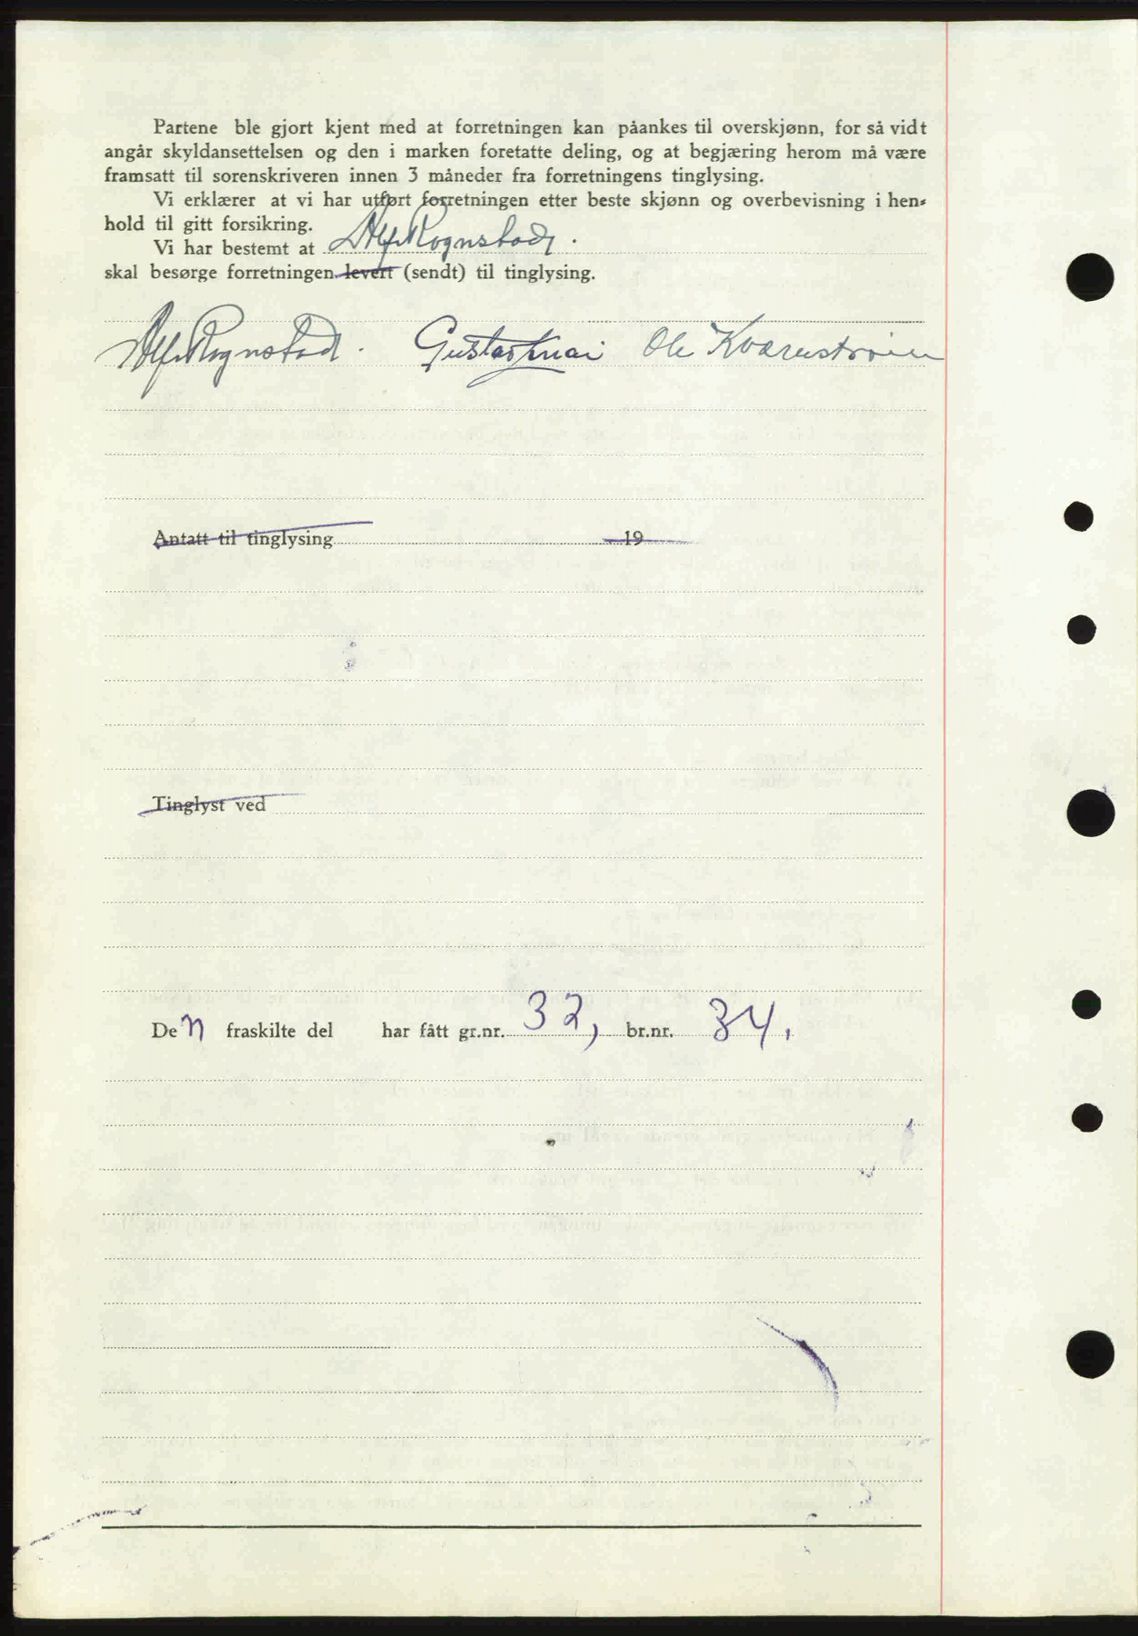 Partene ble gjort kjent med at forretningen kan påankes til overskjønn, for så vidt
angår skyldansettelsen og den i marken foretatte deling, og at begjæring herom må være
framsatt til sorenskriveren innen 3 måneder fra forretningens tinglysing.
Vi erklærer at vi har utført forretningen etter beste skjønn og overbevisning i hen-
hold til gitt forsikring.
Vi har bestemt at Alf Rognstad.
skal besørge forretningen levert (sendt) til tinglysing.
Alf Rognstad. Gustav Ole Kvarnstrøm
Antatt til tinglysing 19
Tinglyst ved
Den fraskilte del har fått gr.nr. 32, br.nr. 34.